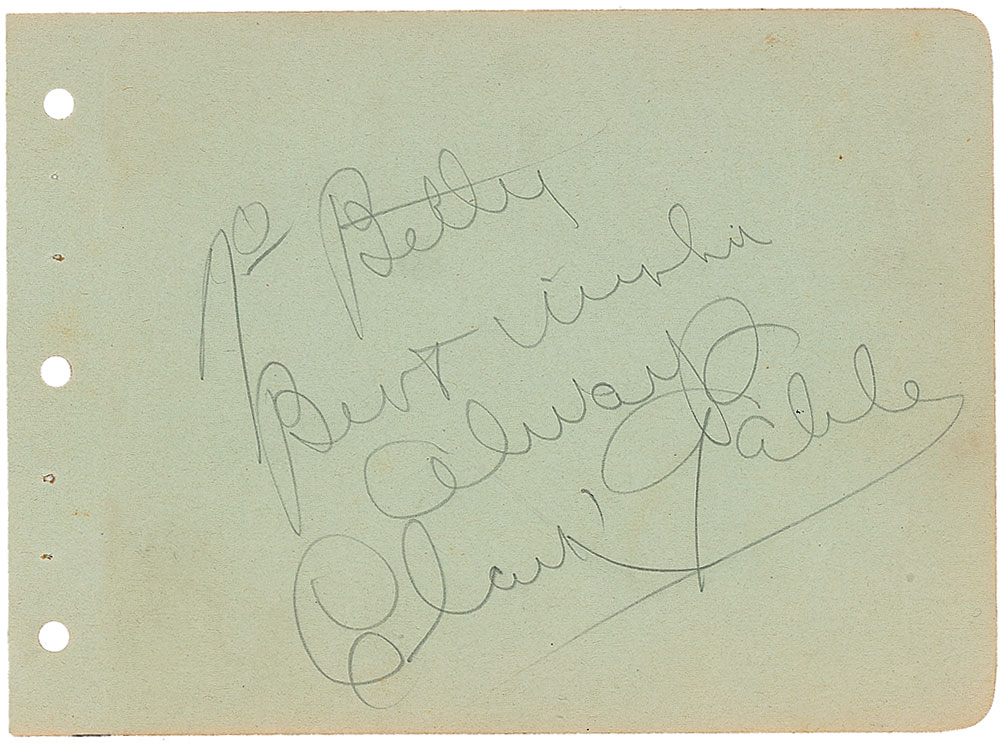 To Betty
Best wishes
always
Clark Gable